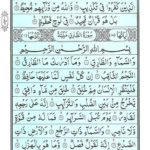 الَّذِينَ كَفَرُوا فِي تَكْذِيبٍ وَاللَّهُ مِنْ وَرَائِهِمْ مُحِيطٌ
بَلْ هُوَ قُرْآنٌ مَجِيدٌ فِي لَوْحٍ مَحْفُوظٍ
سُورَةُ الطَّارِقِ مَكِّيَّةٌ
بِسْمِ اللَّهِ الرَّحْمَٰنِ الرَّحِيمِ
وَالسَّمَاءِ وَالطَّارِقِ وَمَا أَدْرَاكَ مَا الطَّارِقُ
النَّجْمُ الثَّاقِبُ إِنْ كُلُّ نَفْسٍ لَمَّا عَلَيْهَا حَافِظٌ
فَلْيَنْظُرِ الْإِنْسَانُ مِمَّ خُلِقَ خُلِقَ مِنْ مَاءٍ دَافِقٍ
يَخْرُجُ مِنْ بَيْنِ الصُّلْبِ وَالتَّرَائِبِ إِنَّهُ عَلَىٰ رَجْعِهِ
لَقَادِرٌ يَوْمَ تُبْلَى السَّرَائِرُ فَمَا لَهُ مِنْ قُوَّةٍ
وَلَا نَاصِرٍ وَالسَّمَاءِ ذَاتِ الرَّجْعِ وَالْأَرْضِ ذَاتِ